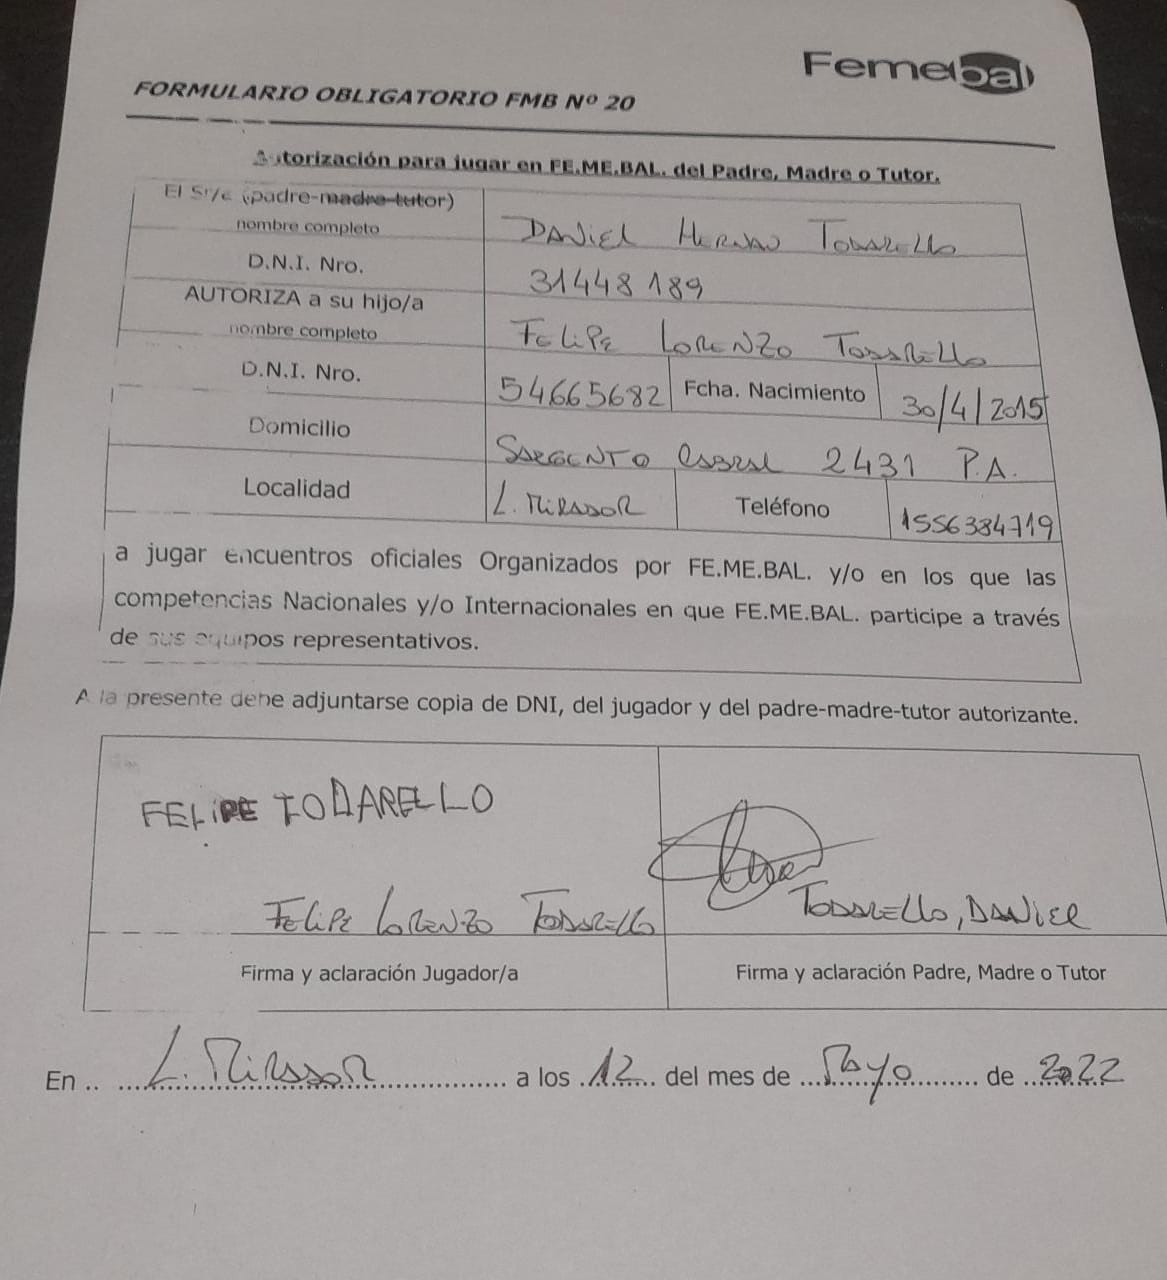 Femebal
FORMULARIO OBLIGATORIO FMB Nº 20
Autorización para jugar en FE.ME.BAL. del Padre, Madre o Tutor.
El Sr/a (padre-madre-tutor)
nombre completo
DANIEL HERNAN TODARELLO
D.N.I. Nro.
31448189
AUTORIZA a su hijo/a
nombre completo
FELIPE LORENZO TODARELLO
D.N.I. Nro.
54665682
Fcha. Nacimiento
30/4/2015
Domicilio
SARGENTO CABRAL 2431 P.A.
Localidad
L. MIRADOR
Teléfono
1556384719
a jugar encuentros oficiales Organizados por FE.ME.BAL. y/o en los que las
competencias Nacionales y/o Internacionales en que FE.ME.BAL. participe a través
de sus equipos representativos.
A la presente debe adjuntarse copia de DNI, del jugador y del padre-madre-tutor autorizante.
FELIPE TODARELLO
FELIPE LORENZO TODARELLO
TODARELLO, DANIEL
Firma y aclaración Jugador/a
Firma y aclaración Padre, Madre o Tutor
En .. L. MIRADOR a los 12 del mes de Mayo de 2022